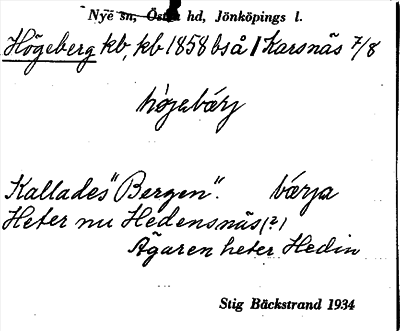 Nye sn, Östra hd, Jönköpings l.
Högeberg kb, kb 1858 bså 1 Karsnäs 7/8
hö̀gabä́rj
Kallades "Bergen". bærja
Heter nu Hedensnäs (?)
Ägaren heter Hedin
Stig Bäckstrand 1934